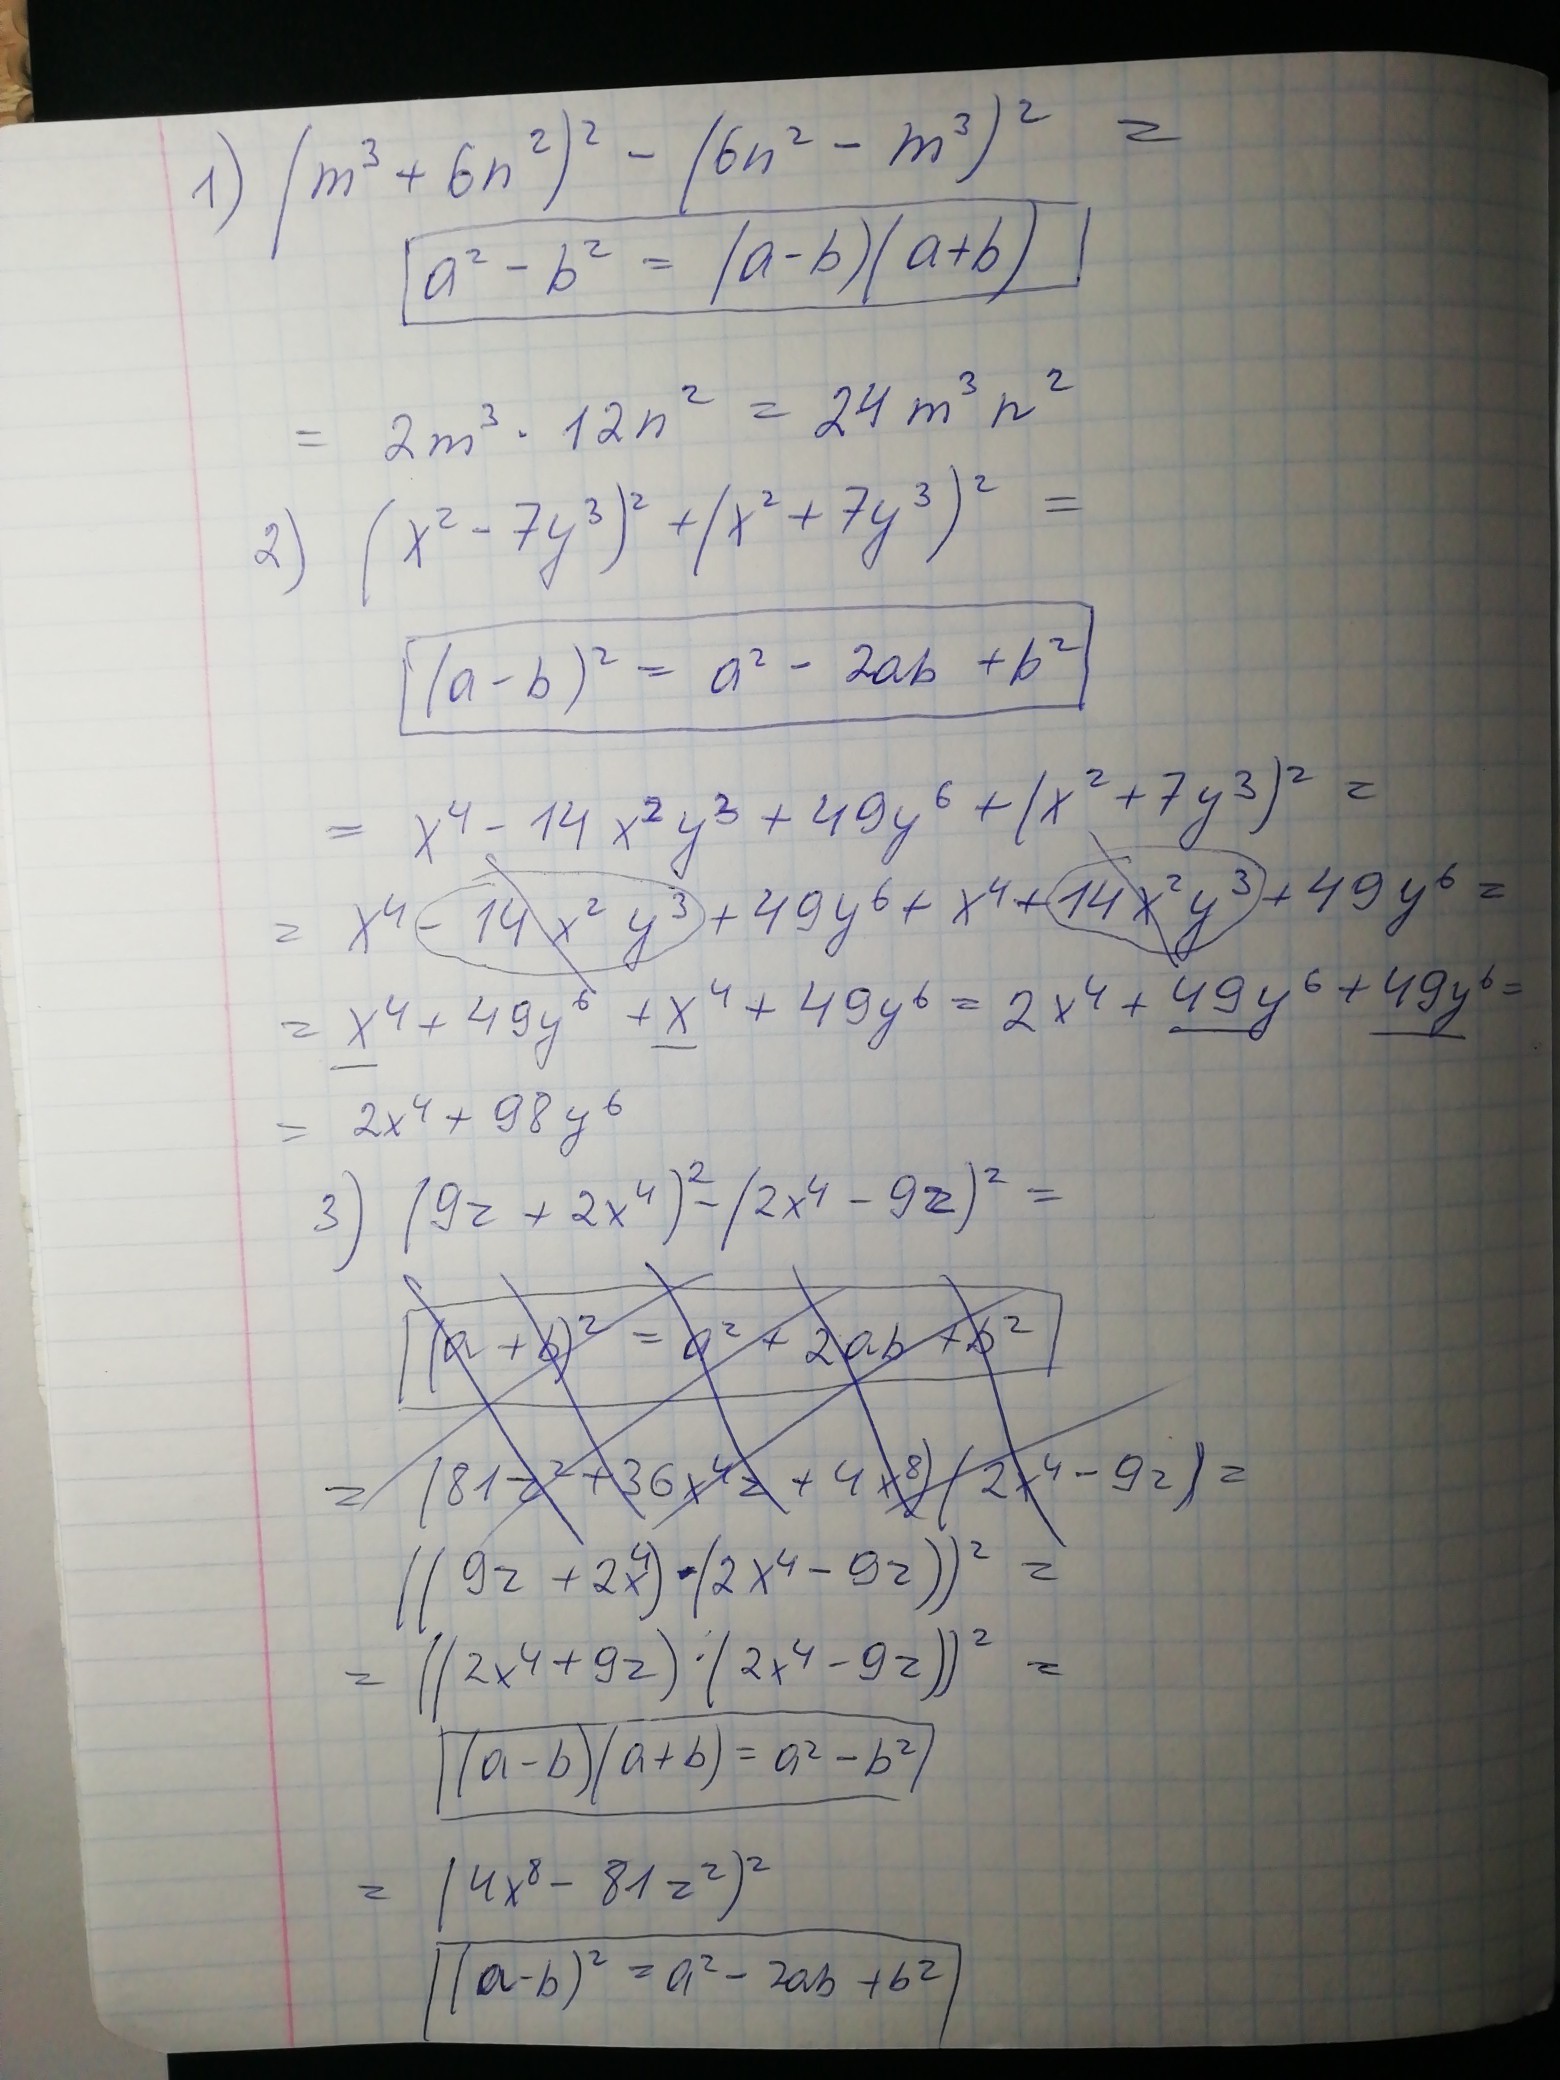 1) (m³ + 6n²)² - (6n² - m³)² =
a² - b² = (a-b)(a+b)
= 2m³ · 12n² = 24m³n²
2) (x² - 7y³)² + (x² + 7y³)² =
(a-b)² = a² - 2ab + b²
= x⁴ - 14x²y³ + 49y⁶ + (x² + 7y³)² =
= x⁴ - 14x²y³ + 49y⁶ + x⁴ + 14x²y³ + 49y⁶ =
= x⁴ + 49y⁶ + x⁴ + 49y⁶ = 2x⁴ + 49y⁶ + 49y⁶ =
= 2x⁴ + 98y⁶
3) (9z + 2x⁴)² - (2x⁴ - 9z)² =
(a+b)² = a² + 2ab + b²
= (81z² + 36x⁴z + 4x⁸)(2x⁴ - 9z) =
((9z + 2x⁴) · (2x⁴ - 9z))² =
= ((2x⁴ + 9z) · (2x⁴ - 9z))² =
(a-b)(a+b) = a² - b²
= (4x⁸ - 81z²)²
(a-b)² = a² - 2ab + b²